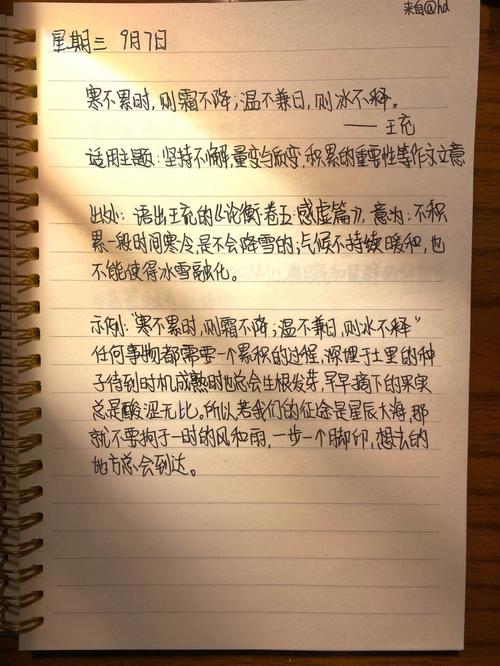 来自@hd
星期三 9月7日
寒不累时,则霜不降;温不兼日,则冰不释。
——王充
适用主题:坚持不懈,量变与质变,积累的重要性等作文立意
出处:语出王充的《论衡·卷五·感虚篇》,意为:不积
累一段时间寒冷是不会降雪的;气候不持续暖和,也
不能使得冰雪融化。
示例:"寒不累时,则霜不降;温不兼日,则冰不释"
任何事物都需要一个累积的过程,深埋于土里的种
子待到时机成熟时也总会生根发芽,早早摘下的果实
总是酸涩无比。所以若我们的征途是星辰大海,那
就不要拘于一时的风和雨,一步一个脚印,想去的
地方总会到达。